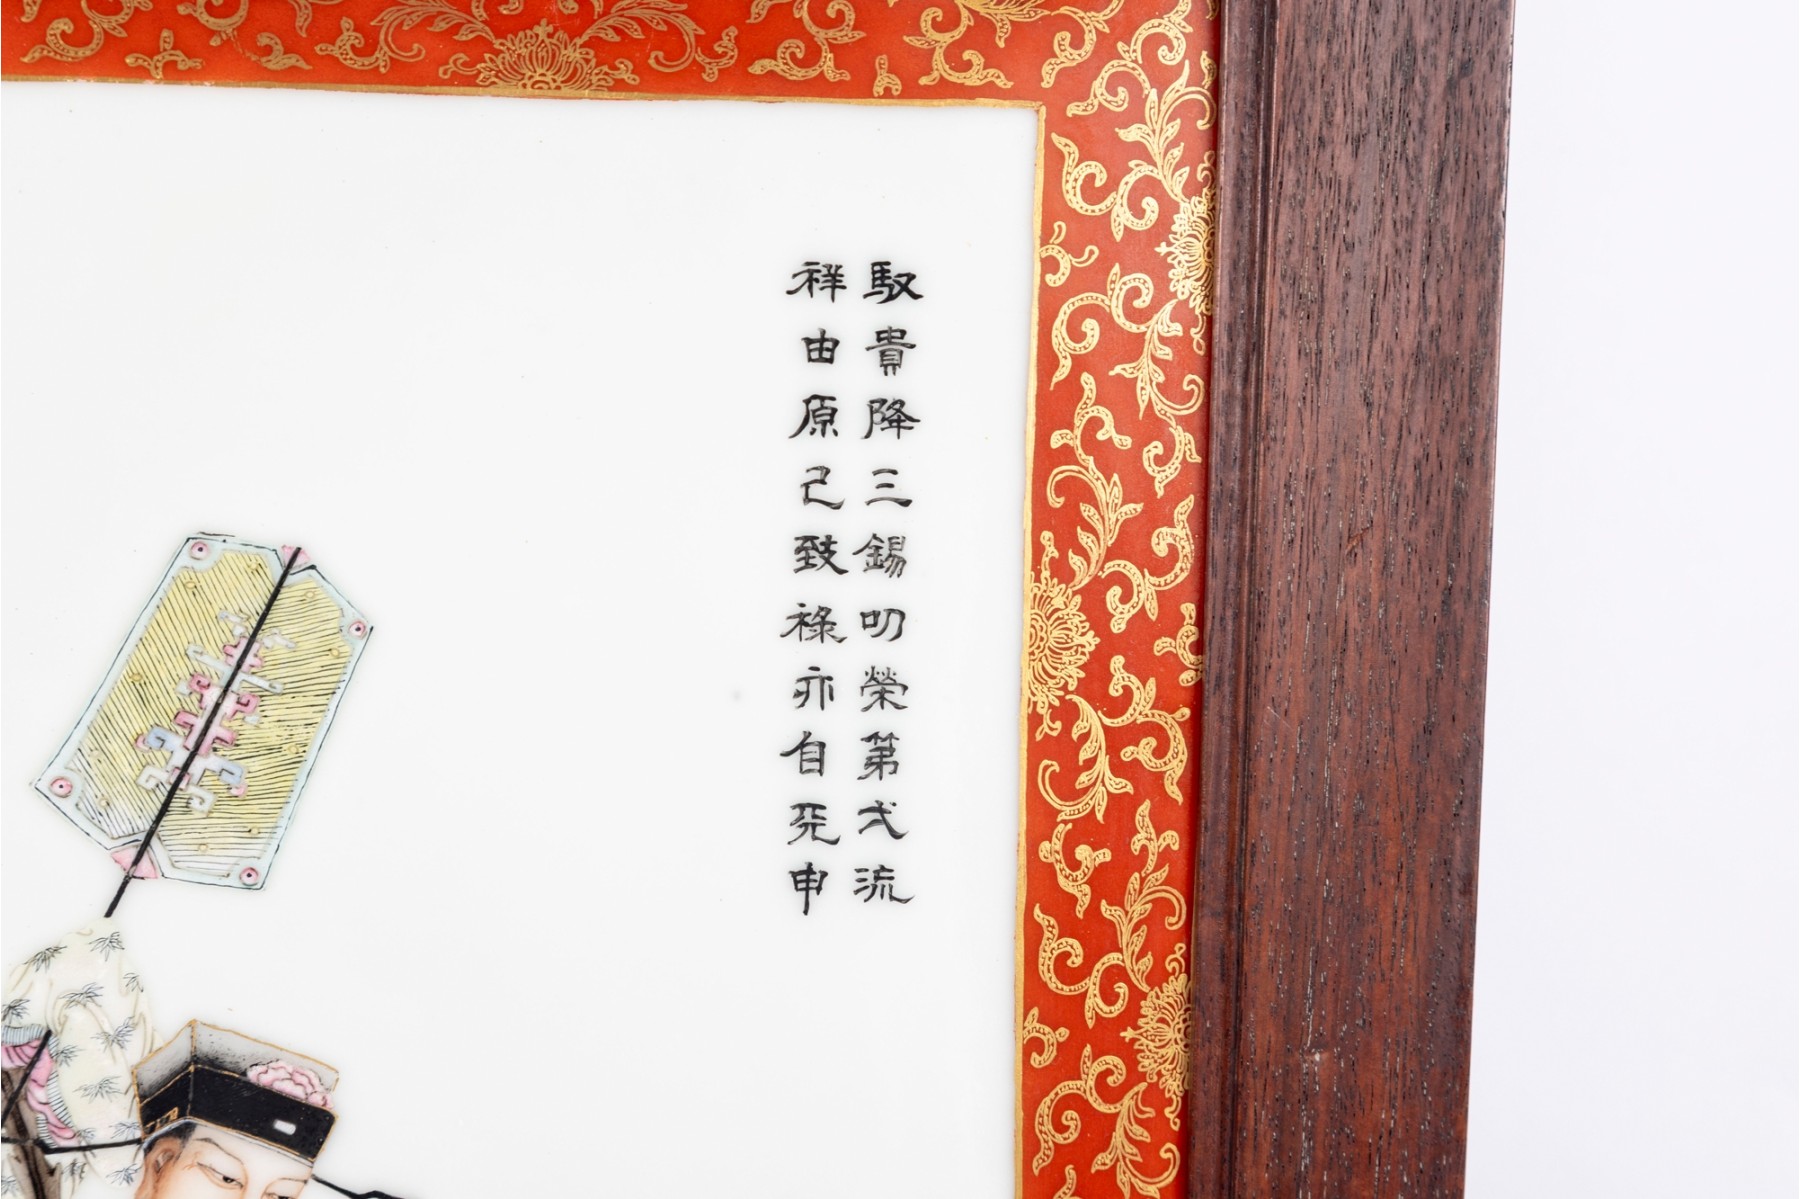 馭貴降三錫叨榮第弍流
祥由原己致祿亦自天申